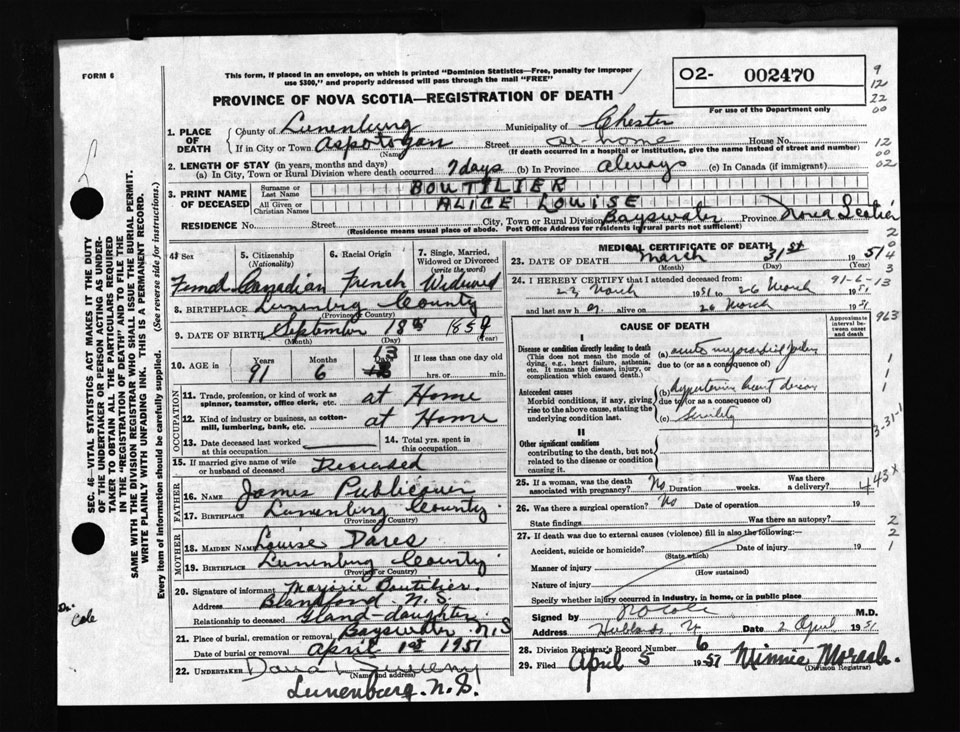 FORM 6
This form, if placed in an envelope, on which is printed "Dominion Statistics—Free, penalty for improper
use $300," and properly addressed will pass through the mail "FREE"
PROVINCE OF NOVA SCOTIA—REGISTRATION OF DEATH
O2- 002470
For use of the Department only
9
12
22
00
12
00
02
1. PLACE OF DEATH
County of Lunenburg Municipality of Chester
If in City or Town Aspotogan Street House No.
(Name) (If death occurred in a hospital or institution, give the name instead of street and number)
2. LENGTH OF STAY (in years, months and days)
(a) In City, Town or Rural Division where death occurred 7 days (b) In Province always (c) In Canada (if immigrant)
3. PRINT NAME OF DECEASED
Surname or Last Name BOUTILIER
All Given or Christian Names ALICE LOUISE
RESIDENCE No. Street City, Town or Rural Division Bayswater Province Nova Scotia
(Residence means usual place of abode. Post Office Address for residents in rural parts not sufficient)
4. Sex 5. Citizenship (Nationality) 6. Racial Origin 7. Single, Married, Widowed or Divorced (write the word)
Female Canadian French Widowed
8. BIRTHPLACE Lunenburg County
(Province or Country)
9. DATE OF BIRTH September 18th 1859
(Month) (Day) (Year)
10. AGE in Years Months Days If less than one day old
91 6 13 hrs. or min.
OCCUPATION
11. Trade, profession, or kind of work as spinner, teamster, office clerk, etc. at Home
12. Kind of industry or business, as cotton-mill, lumbering, bank, etc. at Home
13. Date deceased last worked at this occupation 14. Total yrs. spent in this occupation
15. If married give name of wife or husband of deceased Deceased
FATHER
16. NAME James Publicover
17. BIRTHPLACE Lunenburg County
(Province or Country)
MOTHER
18. MAIDEN NAME Louise Dares
19. BIRTHPLACE Lunenburg County
(Province or Country)
20. Signature of informant Marjorie Boutilier
Address Blandford N.S.
Relationship to deceased Grand-daughter
21. Place of burial, cremation or removal Bayswater N.S
Date of burial or removal April 1st 1951
22. UNDERTAKER
(Name and address)
Lunenburg, N.S.
MEDICAL CERTIFICATE OF DEATH
23. DATE OF DEATH March 31st 1951
(Month) (Day) (Year)
24. I HEREBY CERTIFY that I attended deceased from:
23 March 1951 to 26 March 1951
and last saw her alive on 26 March 1951
91-6-13
963
CAUSE OF DEATH
Approximate interval between onset and death
I
Disease or condition directly leading to death (a) acute myocardial failure
(This does not mean the mode of dying, e.g., heart failure, asthenia, etc. It means the disease, injury, or complication which caused death.)
due to (or as a consequence of)
Antecedent causes (b) hypertensive heart disease
Morbid conditions, if any, giving rise to the above cause, stating the underlying condition last.
due to (or as a consequence of)
(c) Senility
II
Other significant conditions
contributing to the death, but not related to the disease or condition causing it.
25. If a woman, was the death associated with pregnancy? No Duration weeks. Was there a delivery?
26. Was there a surgical operation? No Date of operation 19
State findings Was there an autopsy?
27. If death was due to external causes (violence) fill in also the following:—
Accident, suicide or homicide? Date of injury 19
(State which)
Manner of injury
(How sustained)
Nature of injury
Specify whether injury occurred in industry, in home, or in public place
Signed by M.D.
Address Hubbards Date 2 April 1951
28. Division Registrar's Record Number 6
29. Filed April 5 1951 Minnie Morash.
(Division Registrar)
2
0
4
3
1
1
1
3.31-1
443x
2
2
1
SEC. 46—VITAL STATISTICS ACT MAKES IT THE DUTY
OF THE UNDERTAKER OR PERSON ACTING AS UNDER-
TAKER TO OBTAIN ALL THE PARTICULARS REQUIRED
IN THE "REGISTRATION OF DEATH" AND TO FILE THE
SAME WITH THE DIVISION REGISTRAR WHO SHALL ISSUE THE BURIAL PERMIT.
WRITE PLAINLY WITH UNFADING INK. THIS IS A PERMANENT RECORD.
Every item of information should be carefully supplied. (See reverse side for instructions.)
Dr.
Cole